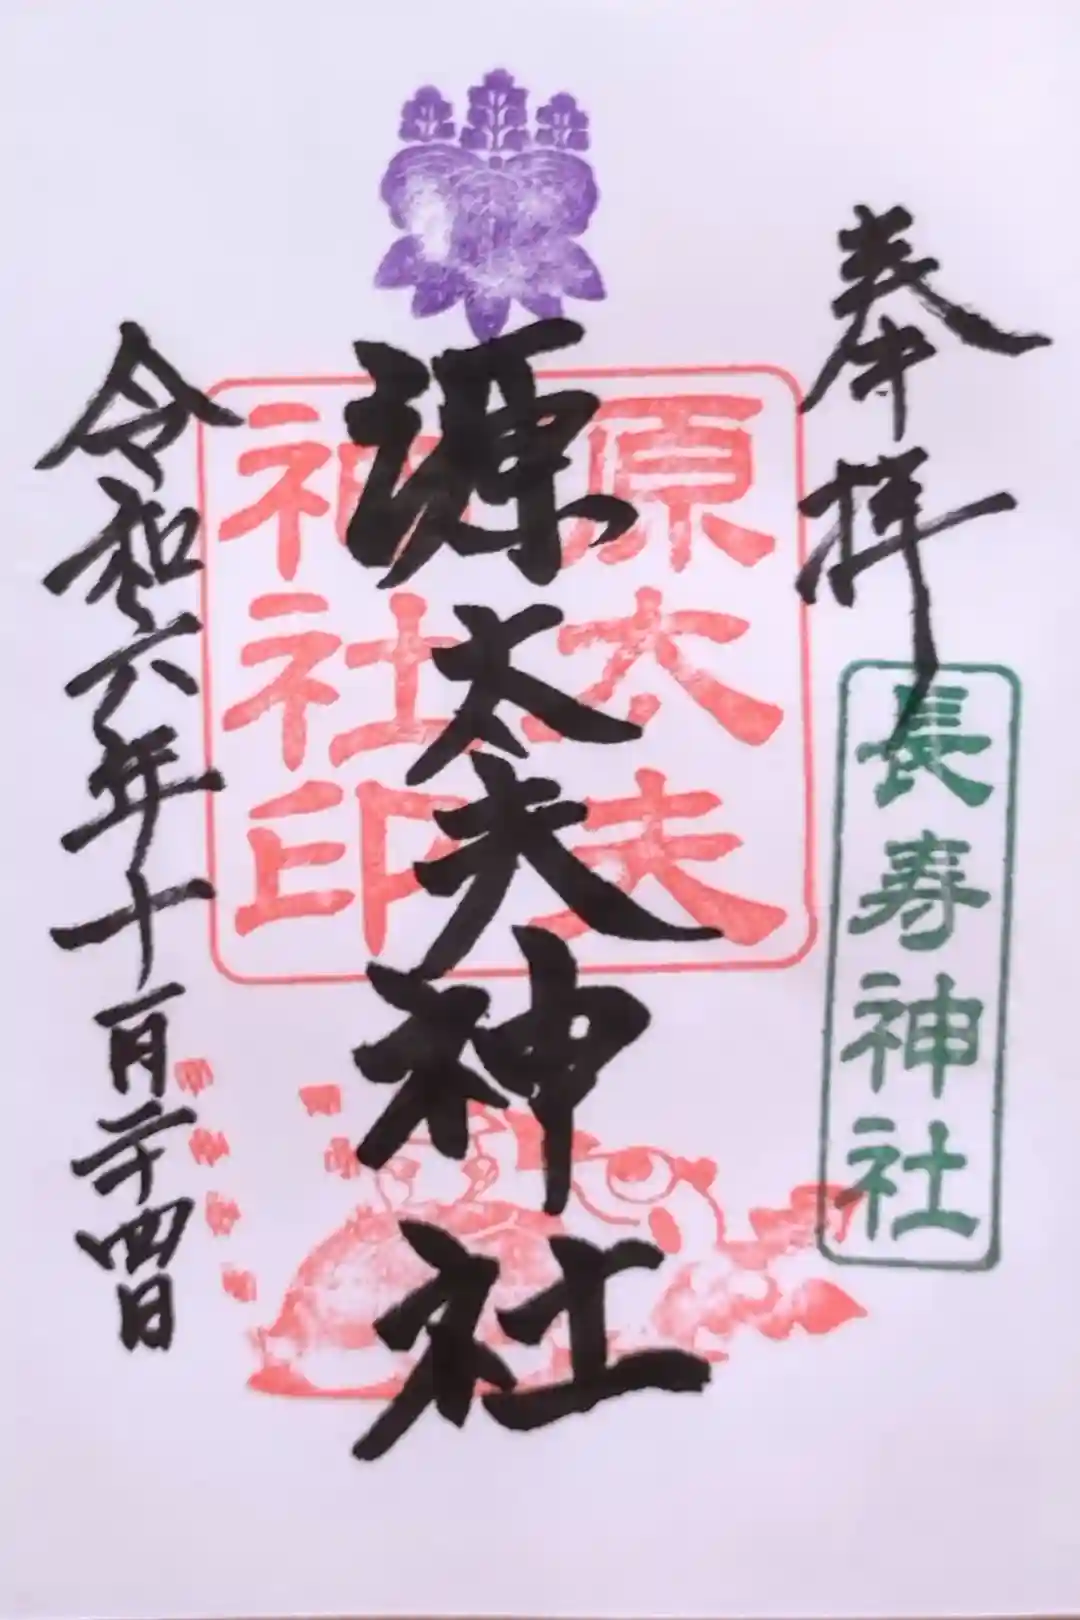 奉拝
長寿神社
源太夫神社
原太夫
神社印
令和六年十一月二十四日